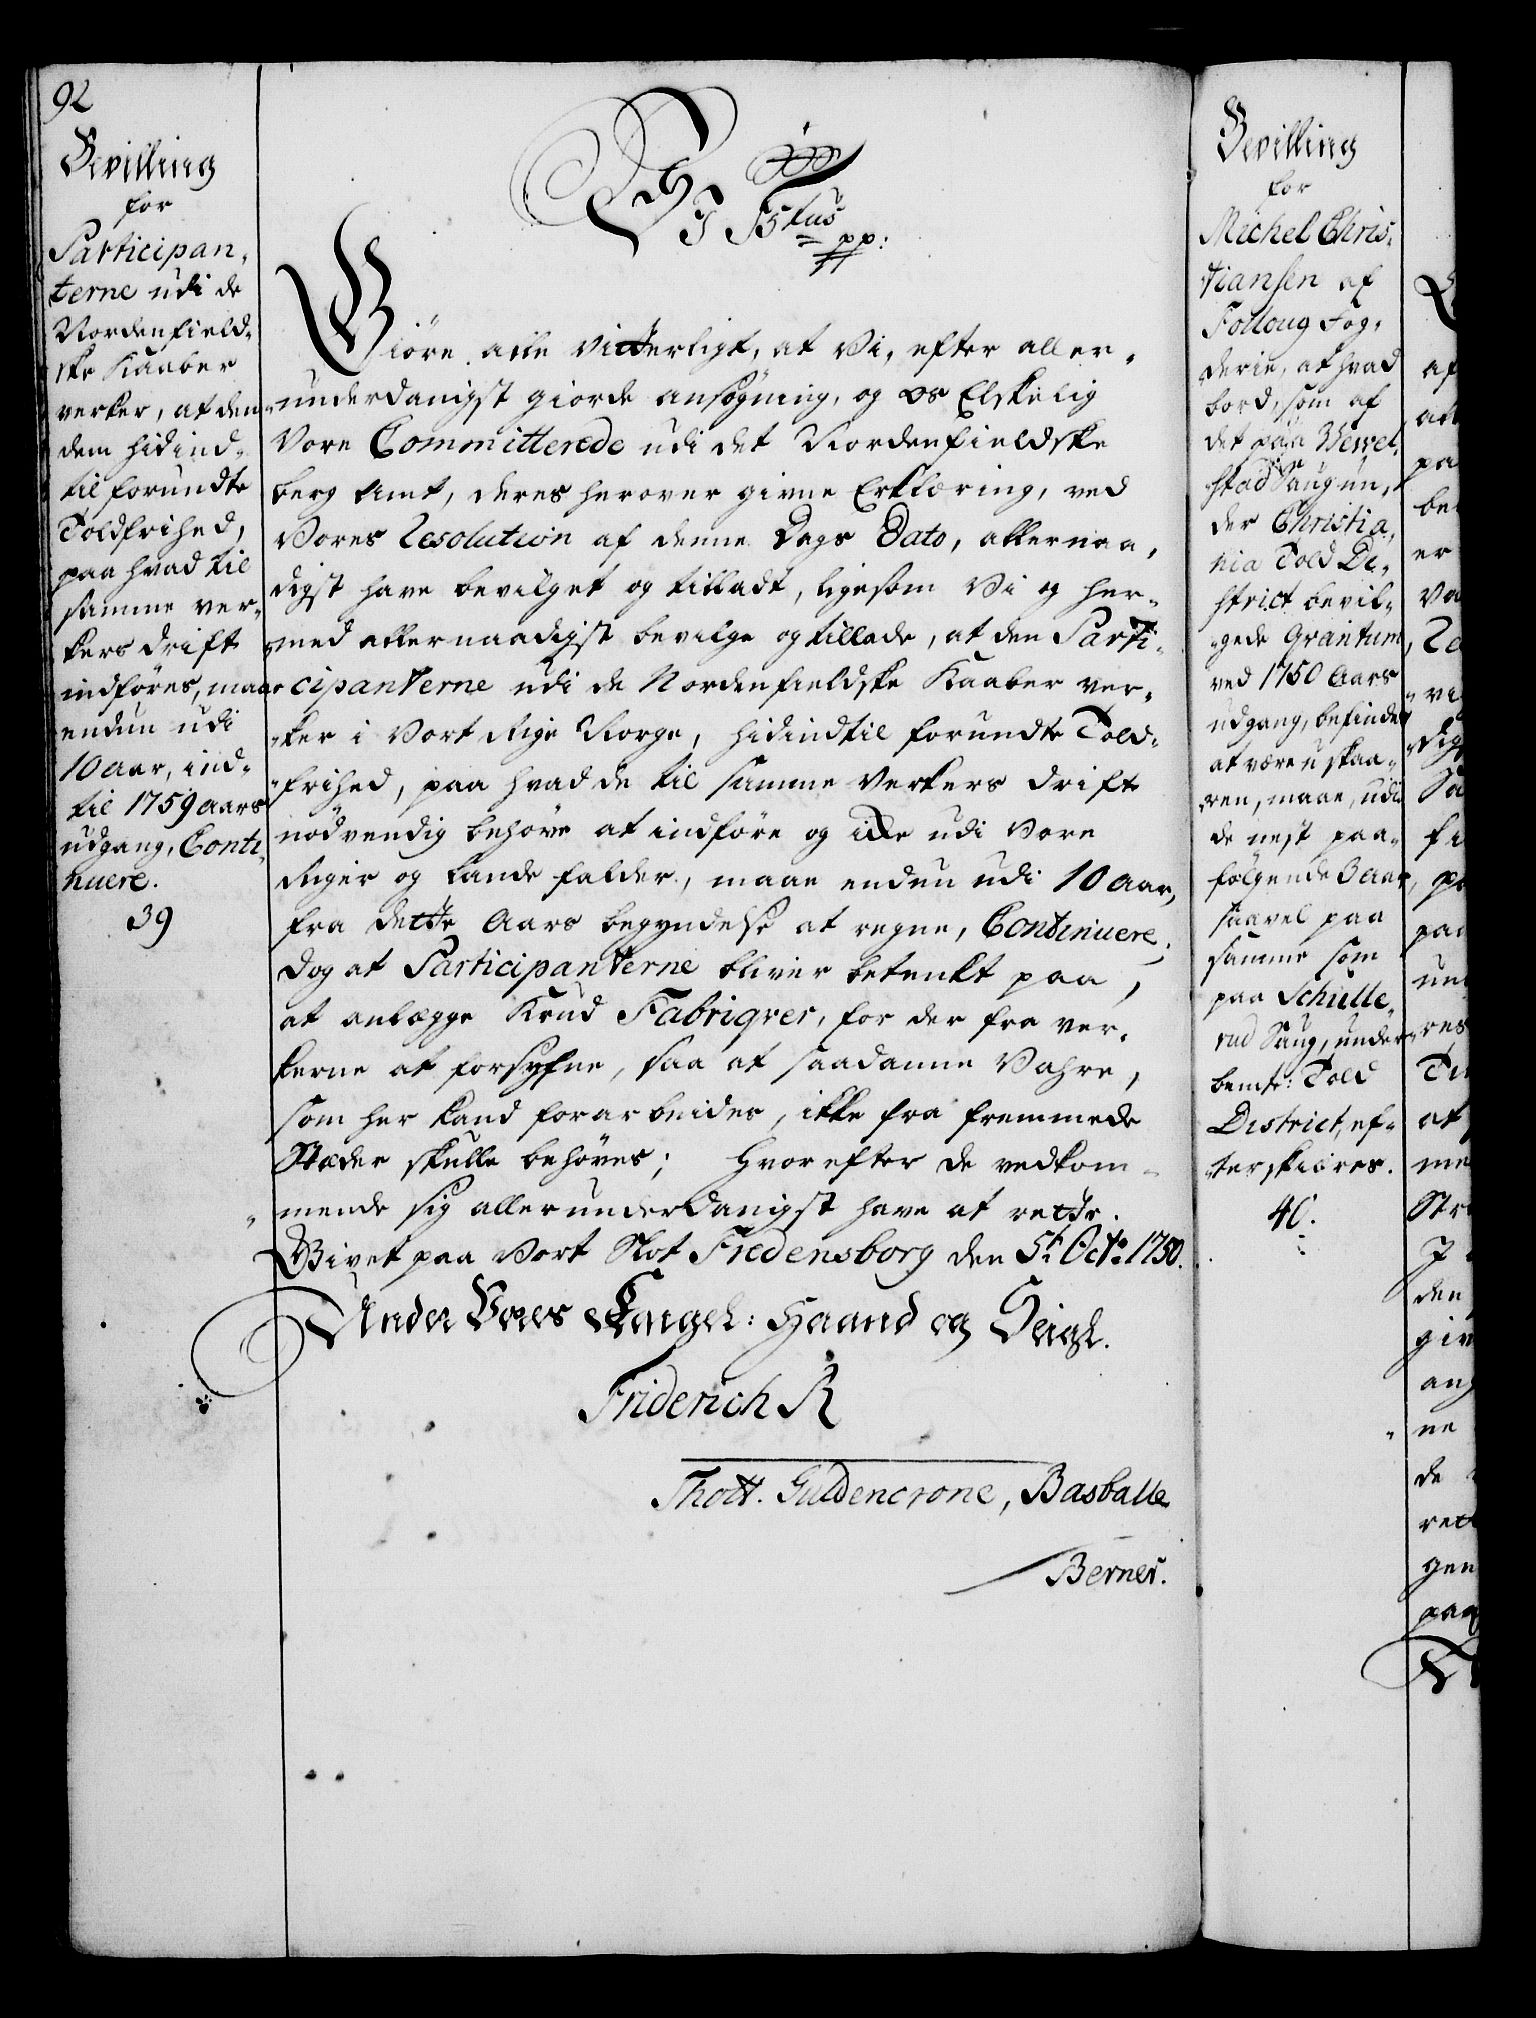 92
Bevilling
for
Participan-
terne udi de
Nordenfield-
ske Kaaber
verker, at den
dem hidind-
til forundte
Toldfrihed,
paa hvad til
samme ver-
kers drift
indføres, maae
endnu udi
10 Aar, ind-
til 1759 Aars
udgang, Conti-
nuere.
39
Vi F 5tus
pp:
Giöre alle vitterligt, at Vi, efter aller-
underdanigst giorde ansögning, og os Elskelig
Vore Committerede udi det Nordenfieldske
berg Amt, deres herover givne Erklæring, ved
Vores Resolution af denne Dags Dato, allernaa-
digst have bevilget og tilladt, ligesom Vi og her-
med allernaadigst bevilge og tillade, at den Parti-
cipanterne udi de Nordenfieldske Kaaber ver-
ker i Vort Rige Norge, hidindtil forundte Told-
frihed, paa hvad de til samme Verkers drift
nödvendig behöve at indföre og icke udi Vore
Riger og Lande falder, maae endnu udi 10 Aar,
fra dette Aars begyndelse at regne, Continuere;
dog at Participanterne bliver betenkt paa,
at anlægge Krud Fabriqver, for der fra ver-
kerne at forsyne, saa at saadanne Vahre,
som her kand forarbeides, ikke fra fremmede
Stæder skulle behöves; Hvorefter de vedkom-
mende sig allerunderdanigst have at rette.
Givet paa Vort Slot Fredensborg den 5t Octo: 1750.
Under Vores Kongel: Haand og Seigl.
Friderich R
Thott. Güldencrone, Basballe
Berner.
Bevilling
for
Michel Chris-
tiansen af
Folloug Fog-
derie, at hvad
bord, som af
det paa Wewel-
stad Saug un-
der Christia-
nia Told Di-
strict bevil-
gede Qvantum,
ved 1750 Aars
udgang, befindes
at være uskaa-
ren, maae, udi
de nest paa-
følgende 3 Aar,
saavel paa
samme som
paa Schulle-
rud Saug, under
bemte: Told
District, ef-
terskiæres.
40.